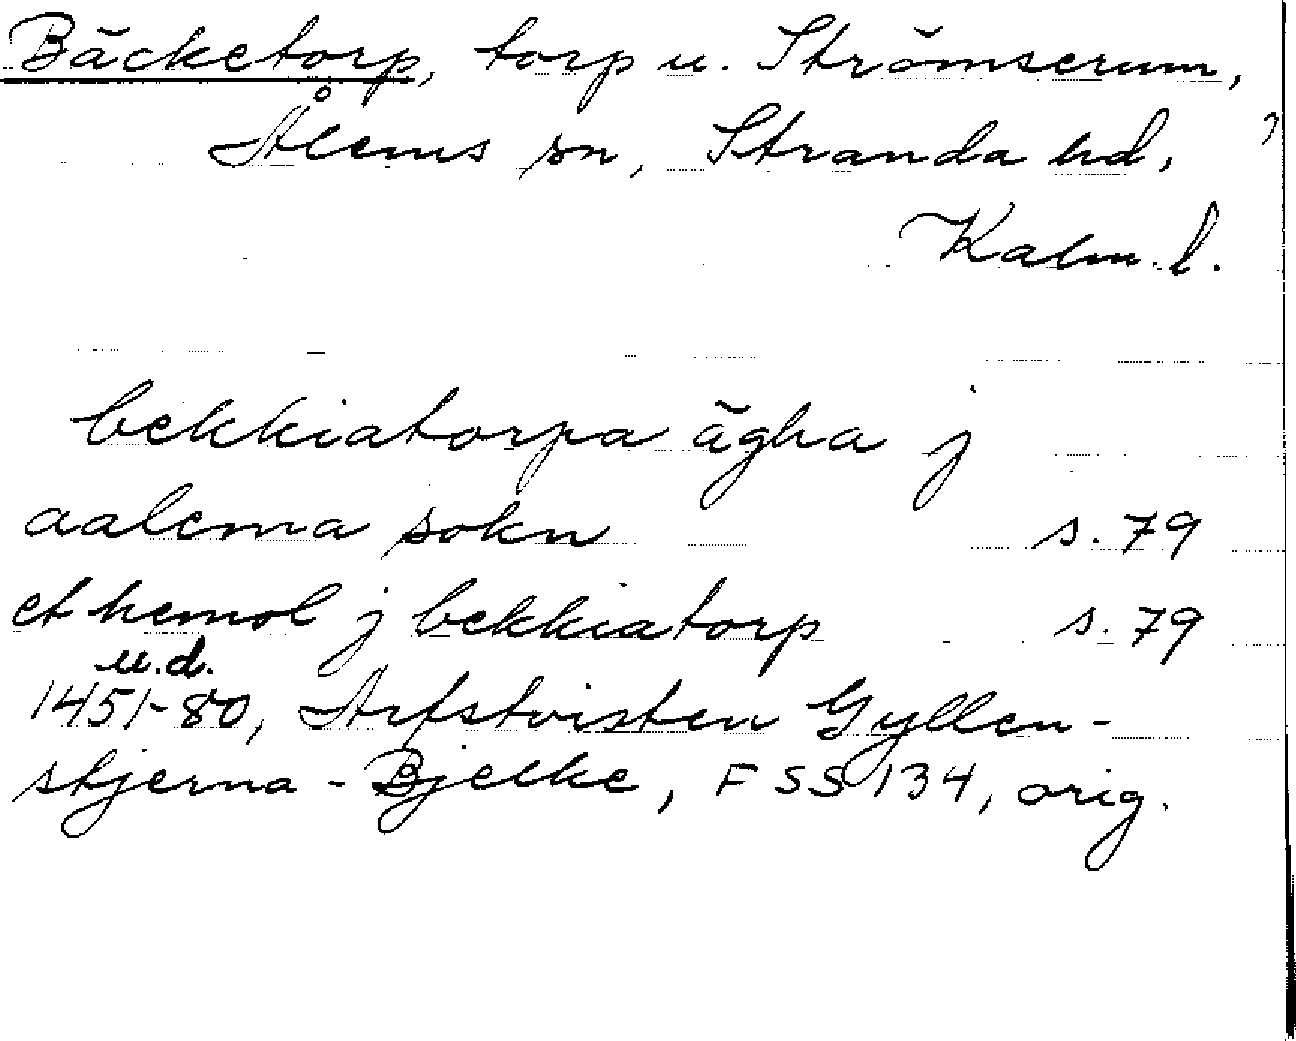 Bäcketorp, torp u. Strömserum,
Ålems sn, Stranda hd,
Kalm. l.
bekkiatorpa ägha j
aalema sokn s. 79
et hemol j bekkiatorp s. 79
u.d.
1451-80, Arfstvisten Gyllen-
stjerna - Bjelke, FSS 134, orig.